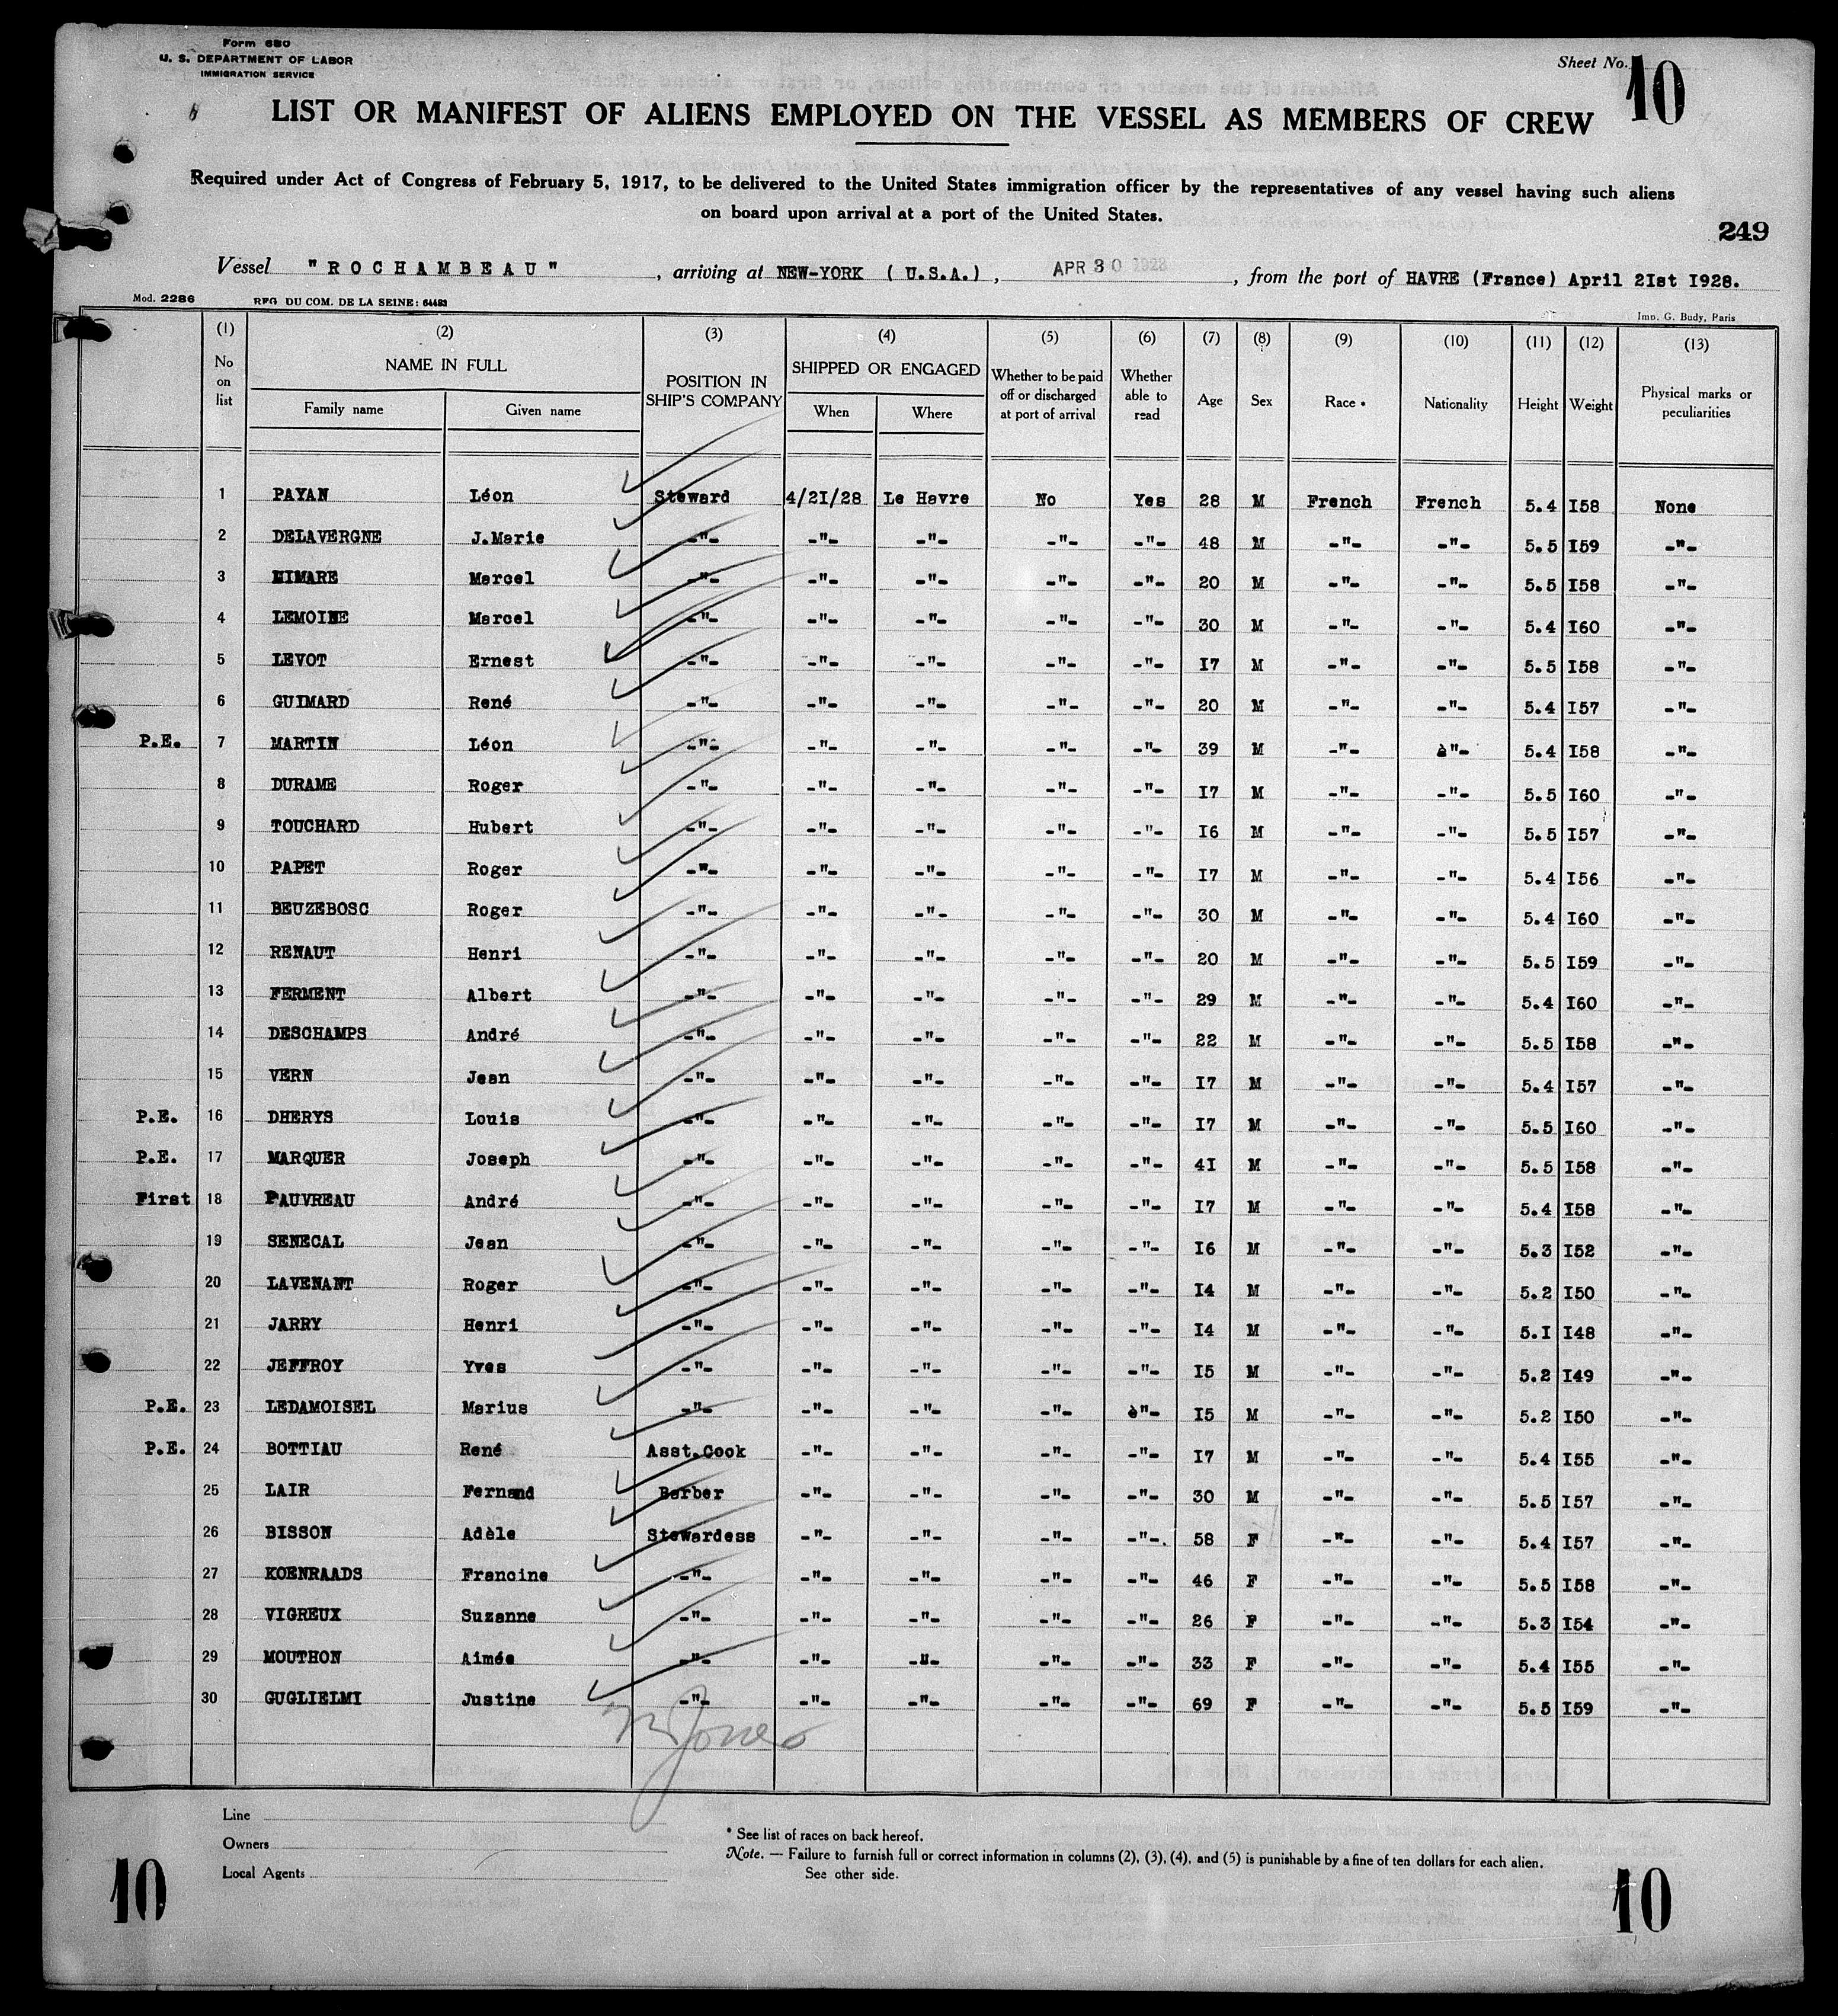 Form 680
U. S. DEPARTMENT OF LABOR
IMMIGRATION SERVICE
Sheet No. 10
LIST OR MANIFEST OF ALIENS EMPLOYED ON THE VESSEL AS MEMBERS OF CREW
Required under Act of Congress of February 5, 1917, to be delivered to the United States immigration officer by the representatives of any vessel having such aliens
on board upon arrival at a port of the United States.
249
Vessel "ROCHAMBEAU", arriving at NEW-YORK (U.S.A.), APR 30 1928, from the port of HAVRE (France) April 2Ist I928.
Mod. 2286 RPG DU COM. DE LA SEINE: 64483 Imp. G. Budy, Paris
(1) (2) (3) (4) (5) (6) (7) (8) (9) (10) (11) (12) (13)
No on list NAME IN FULL POSITION IN SHIP'S COMPANY SHIPPED OR ENGAGED Whether to be paid off or discharged at port of arrival Whether able to read Age Sex Race * Nationality Height Weight Physical marks or peculiarities
Family name Given name When Where
1 PAYAN Léon Steward 4/2I/28 Le Havre No Yes 28 M French French 5.4 I58 None
2 DELAVERGNE J.Marie -"- -"- -"- -"- -"- 48 M -"- -"- 5.5 I59 -"-
3 HIMARE Marcel -"- -"- -"- -"- -"- 20 M -"- -"- 5.5 I58 -"-
4 LEMOINE Marcel -"- -"- -"- -"- -"- 30 M -"- -"- 5.4 I60 -"-
5 LEVOT Ernest -"- -"- -"- -"- -"- I7 M -"- -"- 5.5 I58 -"-
6 GUIMARD René -"- -"- -"- -"- -"- 20 M -"- -"- 5.4 I57 -"-
P.E. 7 MARTIN Léon -"- -"- -"- -"- -"- 39 M -"- à"- 5.4 I58 -"-
8 DURAME Roger -"- -"- -"- -"- -"- I7 M -"- -"- 5.5 I60 -"-
9 TOUCHARD Hubert -"- -"- -"- -"- -"- I6 M -"- -"- 5.5 I57 -"-
10 PAPET Roger -"- -"- -"- -"- -"- I7 M -"- -"- 5.4 I56 -"-
11 BEUZEBOSC Roger -"- -"- -"- -"- -"- 30 M -"- -"- 5.4 I60 -"-
12 RENAUT Henri -"- -"- -"- -"- -"- 20 M -"- -"- 5.5 I59 -"-
13 FERMENT Albert -"- -"- -"- -"- -"- 29 M -"- -"- 5.4 I60 -"-
14 DESCHAMPS André -"- -"- -"- -"- -"- 22 M -"- -"- 5.5 I58 -"-
15 VERN Jean -"- -"- -"- -"- -"- I7 M -"- -"- 5.4 I57 -"-
P.E. 16 DHERYS Louis -"- -"- -"- -"- -"- I7 M -"- -"- 5.5 I60 -"-
P.E. 17 MARQUER Joseph -"- -"- -"- -"- -"- 4I M -"- -"- 5.5 I58 -"-
First 18 PAUVREAU André -"- -"- -"- -"- -"- I7 M -"- -"- 5.4 I58 -"-
19 SENECAL Jean -"- -"- -"- -"- -"- I6 M -"- -"- 5.3 I52 -"-
20 LAVENANT Roger -"- -"- -"- -"- -"- I4 M -"- -"- 5.2 I50 -"-
21 JARRY Henri -"- -"- -"- -"- -"- I4 M -"- -"- 5.I I48 -"-
22 JEFFROY Yves -"- -"- -"- -"- -"- I5 M -"- -"- 5.2 I49 -"-
P.E. 23 LEDAMOISEL Marius -"- -"- -"- -"- è"- I5 M -"- -"- 5.2 I50 -"-
P.E. 24 BOTTIAU René Asst.Cook -"- -"- -"- -"- I7 M -"- -"- 5.4 I55 -"-
25 LAIR Fernand Barber -"- -"- -"- -"- 30 M -"- -"- 5.5 I57 -"-
26 BISSON Adèle Stewardess -"- -"- -"- -"- 58 F -"- -"- 5.4 I57 -"-
27 KOENRAADS Francine -"- -"- -"- -"- -"- 46 F -"- -"- 5.5 I58 -"-
28 VIGREUX Suzanne -"- -"- -"- -"- -"- 26 F -"- -"- 5.3 I54 -"-
29 MOUTHON Aimée -"- -"- -"- -"- -"- 33 F -"- -"- 5.4 I55 -"-
30 GUGLIELMI Justine -"- -"- -"- -"- -"- 69 F -"- -"- 5.5 I59 -"-
Jones
Line
Owners
Local Agents
* See list of races on back hereof.
Note. — Failure to furnish full or correct information in columns (2), (3), (4), and (5) is punishable by a fine of ten dollars for each alien.
See other side.
10 10